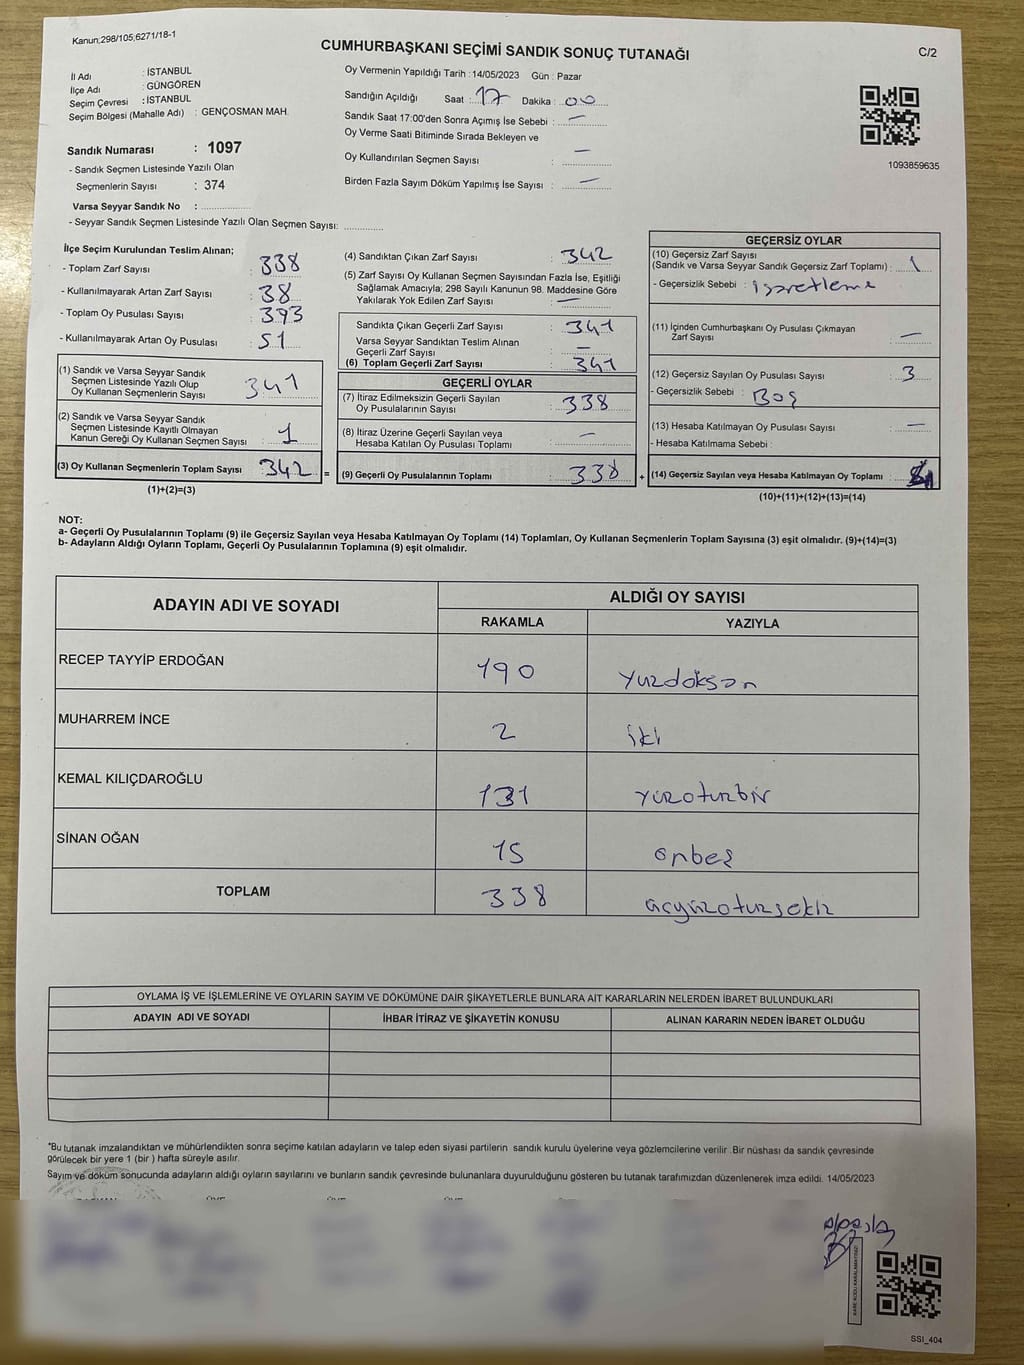 Kanun;298/105,6271/18-1
CUMHURBAŞKANI SEÇİMİ SANDIK SONUÇ TUTANAĞI
C/2
İl Adı : İSTANBUL
İlçe Adı : GÜNGÖREN
Seçim Çevresi : İSTANBUL
Seçim Bölgesi (Mahalle Adı) : GENÇOSMAN MAH.
Oy Vermenin Yapıldığı Tarih : 14/05/2023 Gün : Pazar
Sandığın Açıldığı Saat : 17 Dakika : 00
Sandık Saat 17:00'den Sonra Açımış İse Sebebi : —
Oy Verme Saati Bitiminde Sırada Bekleyen ve
Oy Kullandırılan Seçmen Sayısı : —
Birden Fazla Sayım Döküm Yapılmış İse Sayısı : —
1093859635
Sandık Numarası : 1097
- Sandık Seçmen Listesinde Yazılı Olan
Seçmenlerin Sayısı : 374
Varsa Seyyar Sandık No :
- Seyyar Sandık Seçmen Listesinde Yazılı Olan Seçmen Sayısı:
İlçe Seçim Kurulundan Teslim Alınan;
- Toplam Zarf Sayısı : 338
- Kullanılmayarak Artan Zarf Sayısı : 38
- Toplam Oy Pusulası Sayısı : 393
- Kullanılmayarak Artan Oy Pusulası : 51
(1) Sandık ve Varsa Seyyar Sandık
Seçmen Listesinde Yazılı Olup
Oy Kullanan Seçmenlerin Sayısı : 341
(2) Sandık ve Varsa Seyyar Sandık
Seçmen Listesinde Kayıtlı Olmayan
Kanun Gereği Oy Kullanan Seçmen Sayısı : 1
(3) Oy Kullanan Seçmenlerin Toplam Sayısı : 342
(1)+(2)=(3)
(4) Sandıktan Çıkan Zarf Sayısı : 342
(5) Zarf Sayısı Oy Kullanan Seçmen Sayısından Fazla İse, Eşitliği
Sağlamak Amacıyla; 298 Sayılı Kanunun 98. Maddesine Göre
Yakılarak Yok Edilen Zarf Sayısı : —
Sandıkta Çıkan Geçerli Zarf Sayısı : 341
Varsa Seyyar Sandıktan Teslim Alınan
Geçerli Zarf Sayısı : —
(6) Toplam Geçerli Zarf Sayısı : 341
GEÇERLİ OYLAR
(7) İtiraz Edilmeksizin Geçerli Sayılan
Oy Pusulalarının Sayısı : 338
(8) İtiraz Üzerine Geçerli Sayılan veya
Hesaba Katılan Oy Pusulası Toplamı : —
= (9) Geçerli Oy Pusulalarının Toplamı : 338 +
GEÇERSİZ OYLAR
(10) Geçersiz Zarf Sayısı
(Sandık ve Varsa Seyyar Sandık Geçersiz Zarf Toplamı) : 1
- Geçersizlik Sebebi : işaretleme
(11) İçinden Cumhurbaşkanı Oy Pusulası Çıkmayan
Zarf Sayısı : —
(12) Geçersiz Sayılan Oy Pusulası Sayısı : 3
- Geçersizlik Sebebi : Boş
(13) Hesaba Katılmayan Oy Pusulası Sayısı : —
- Hesaba Katılmama Sebebi :
(14) Geçersiz Sayılan veya Hesaba Katılmayan Oy Toplamı :
(10)+(11)+(12)+(13)=(14)
NOT:
a- Geçerli Oy Pusulalarının Toplamı (9) ile Geçersiz Sayılan veya Hesaba Katılmayan Oy Toplamı (14) Toplamları, Oy Kullanan Seçmenlerin Toplam Sayısına (3) eşit olmalıdır. (9)+(14)=(3)
b- Adayların Aldığı Oyların Toplamı, Geçerli Oy Pusulalarının Toplamına (9) eşit olmalıdır.
ADAYIN ADI VE SOYADI
ALDIĞI OY SAYISI
RAKAMLA YAZIYLA
RECEP TAYYİP ERDOĞAN 190 yüzdoksan
MUHARREM İNCE 2 iki
KEMAL KILIÇDAROĞLU 131 yüzotuzbir
SİNAN OĞAN 15 onbeş
TOPLAM 338 üçyüzotuzsekiz
OYLAMA İŞ VE İŞLEMLERİNE VE OYLARIN SAYIM VE DÖKÜMÜNE DAİR ŞİKAYETLERLE BUNLARA AİT KARARLARIN NELERDEN İBARET BULUNDUKLARI
ADAYIN ADI VE SOYADI İHBAR İTİRAZ VE ŞİKAYETİN KONUSU ALINAN KARARIN NEDEN İBARET OLDUĞU
*Bu tutanak imzalandıktan ve mühürlendikten sonra seçime katılan adayların ve talep eden siyasi partilerin sandık kurulu üyelerine veya gözlemcilerine verilir .Bir nüshası da sandık çevresinde
görülecek bir yere 1 (bir ) hafta süreyle asılır.
Sayım ve döküm sonucunda adayların aldığı oyların sayılarını ve bunların sandık çevresinde bulunanlara duyurulduğunu gösteren bu tutanak tarafımızdan düzenlenerek imza edildi. 14/05/2023
KARE KODU KARALAMAYINIZ!
SSI_404